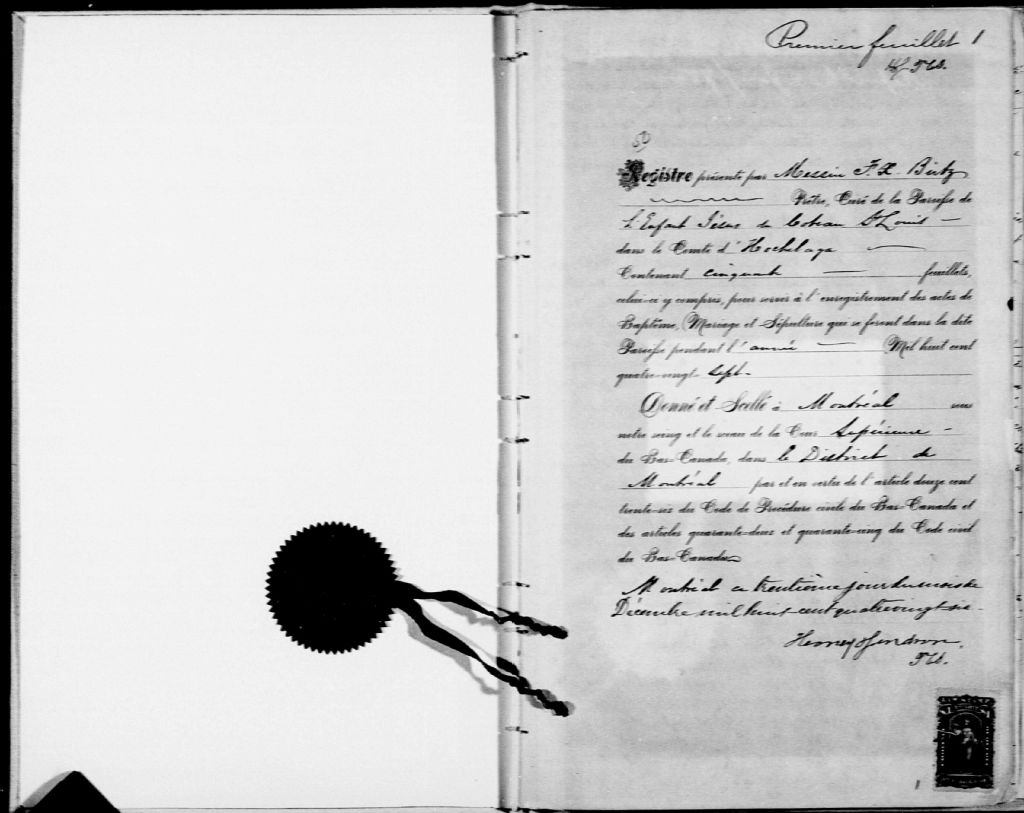 Premier feuillet 1
50
Registre présenté par Messire F. X. Birtz
Prêtre, Curé de la Paroisse de
L'Enfant Jésus du Coteau St Louis
dans le Comté d'Hochelaga
Contenant cinquante feuillets,
celui-ci y compris, pour servir à l'enregistrement des actes de
Baptême, Mariage et Sépulture qui se feront dans la dite
Paroisse pendant l'année Mil huit cent
quatre-vingt-sept.
Donné et Scellé à Montréal sous
notre seing et le sceau de la Cour Supérieure
du Bas-Canada, dans le District de
Montréal par et en vertu de l'article douze cent
trente-six du Code de Procédure civile du Bas-Canada et
des articles quarante-deux et quarante-cinq du Code civil
du Bas-Canada
Montréal ce trentième jour du mois de
Décembre mil huit cent quatre vingt six.